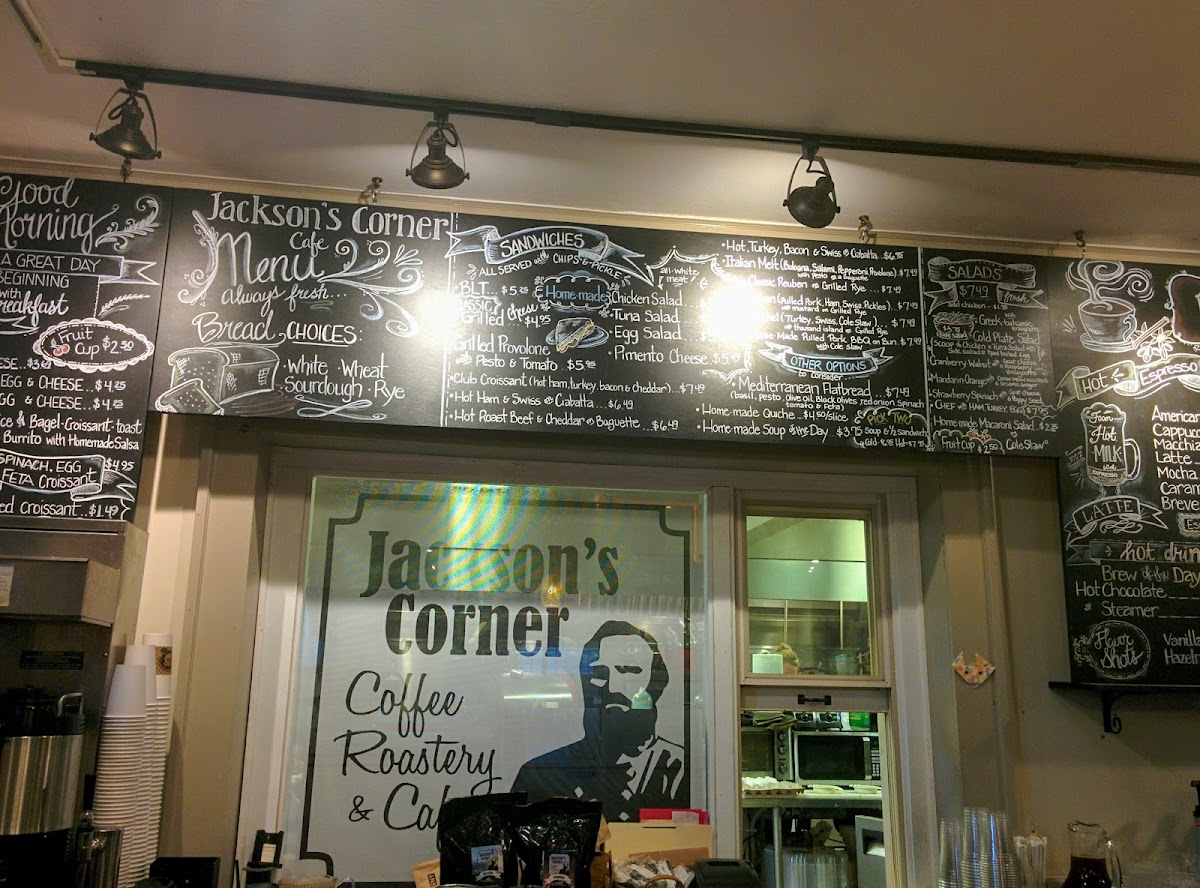 Good
Morning
A GREAT DAY
BEGINNING
with
Breakfast
Fruit
Cup $2.50
EGG & CHEESE...$4.25
EGG & CHEESE...$4.25
Bagel · Croissant · toast
Burrito with Homemade Salsa
SPINACH, EGG $4.95
FETA Croissant
Croissant...$1.49
Jackson's Corner
Cafe
Menu
Always fresh...
Bread CHOICES:
· White · Wheat
Sourdough · Rye
SANDWICHES
ALL SERVED with CHIPS & PICKLE
BLT
CLASSIC
Grilled cheese
$4.95
Grilled Provolone
w/ Pesto & Tomato
· Club Croissant (hot ham, turkey, bacon & cheddar)...$7.49
· Hot Ham & Swiss on Ciabatta...$6.49
· Hot Roast Beef & Cheddar on Baguette...$6.49
Home-made
all-white
meat
Chicken Salad
Tuna Salad
Egg Salad
· Pimento Cheese
· Hot, Turkey, Bacon & Swiss on Ciabatta
· Italian Melt (Bologna, Salami, Pepperoni, Provolone) $7.49
with pesto on a Baguette
Classic Reuben on Grilled Rye...$7.49
(Pulled Pork, Ham, Swiss, Pickles)...$7.49
w/ mustard on Grilled Rye
(Turkey, Swiss, Cole slaw)...$7.49
w/ thousand island on Grilled Rye
Made Pulled Pork, BBQ on Bun $7.49
with Cole slaw
OTHER OPTIONS
to consider
· Mediterranean Flatbread...$7.49
(basil, pesto, olive oil, Black olives, red onion, Spinach
tomato & feta)
· Home-made Quiche $4.50/slice
· Home-made Soup of the Day $3.75
PICK TWO
Soup & ½ Sandwich
SALADS
$7.49
fresh
Greek
Cold Plate Salad
Cranberry Walnut
Mandarin Orange
Strawberry Spinach
CHEF with HAM, TURKEY, EGG $7.95
Home made Macaroni Salad...$2.25
Fruit Cup $2.50 Cole Slaw
HOT Espresso
Foam
Hot
MILK
ESPRESSO
LATTE
Cappucc
Macchia
Latte
Mocha
Caram
Breve
hot drin
Brew of the Day
Hot Chocolate
Steamer
Flavor
Shots
Vanill
Hazeln
Jackson's
Corner
Coffee
Roastery
&